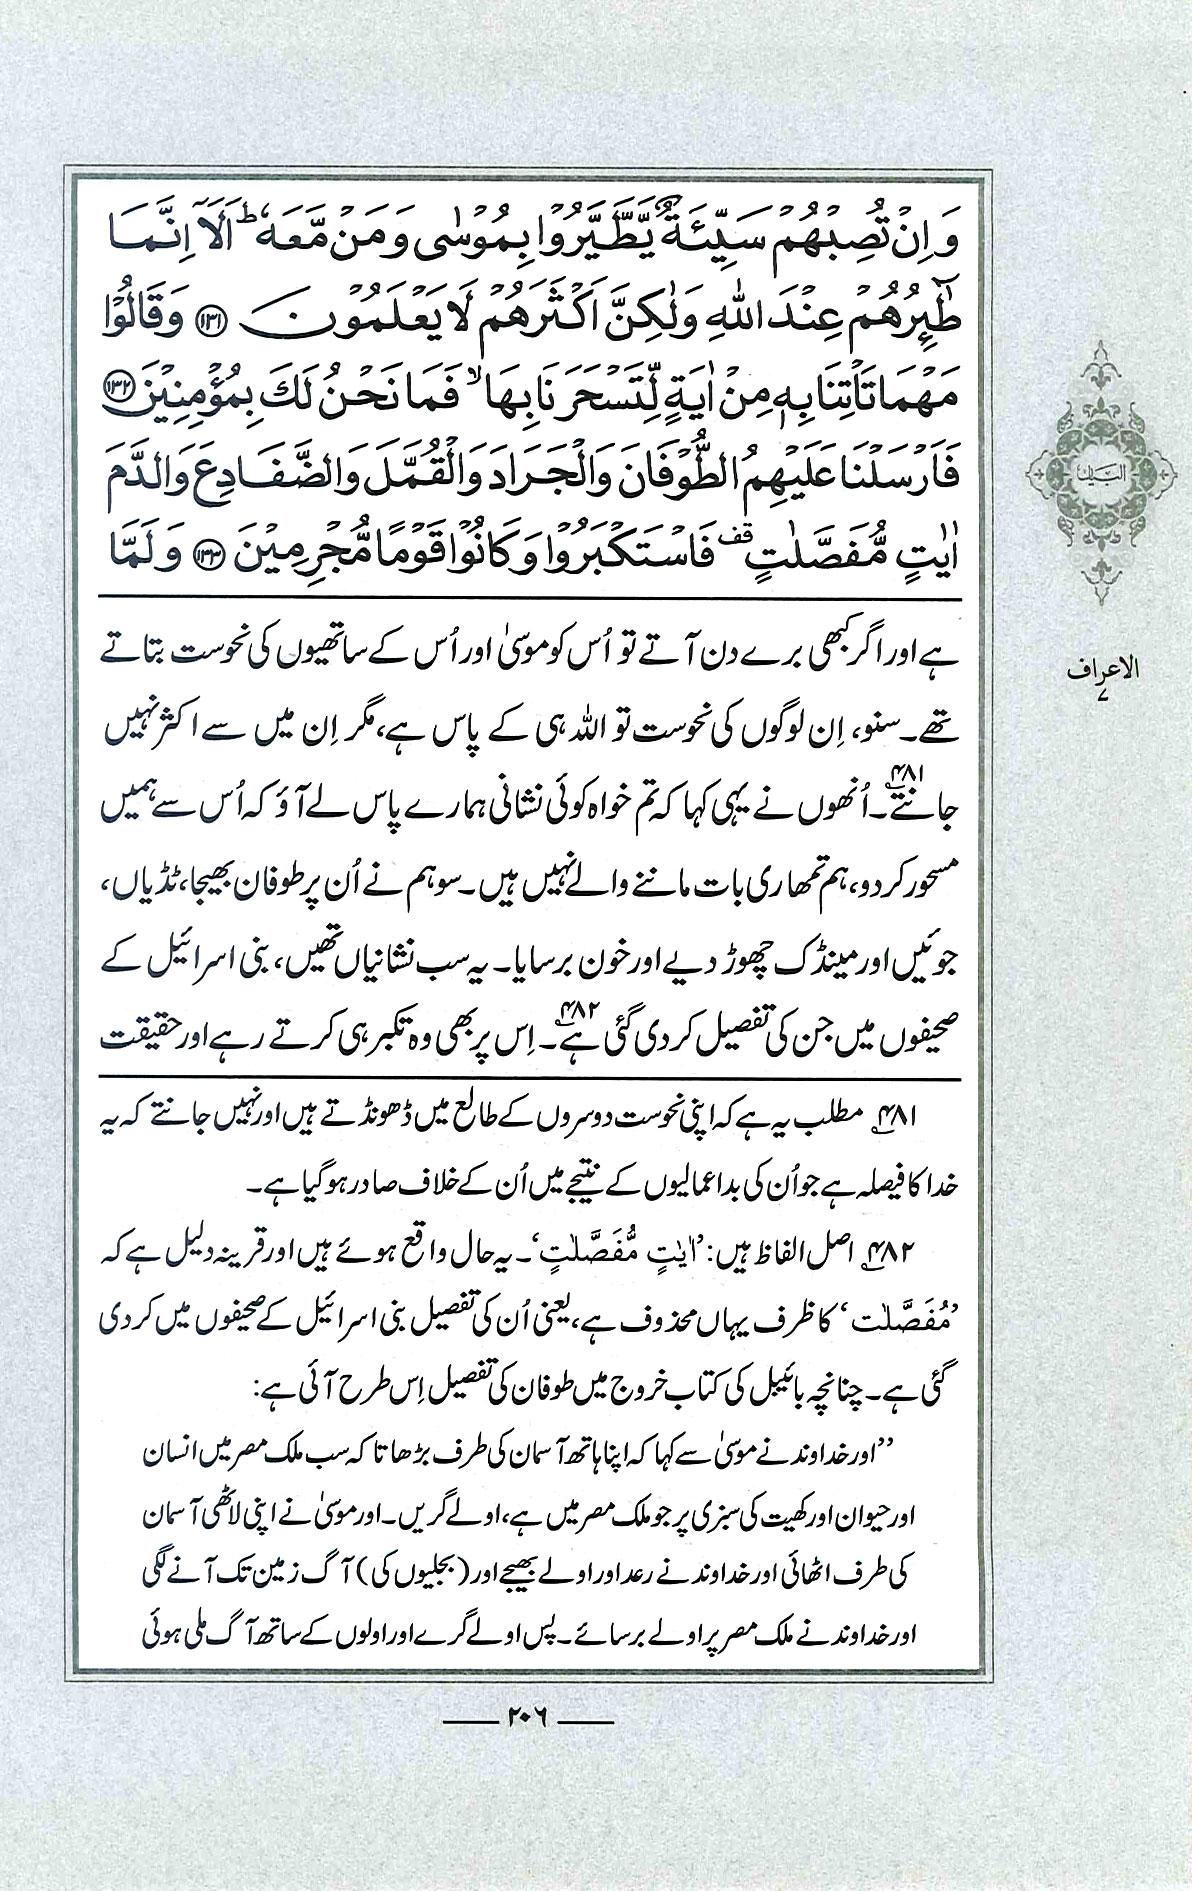 وَاِنْ تُصِبْهُمْ سَيِّئَةٌ يَّطَّيَّرُوْا بِمُوْسٰى وَمَنْ مَّعَهٗ ؕ اَلَاۤ اِنَّمَا
طٰٓئِرُهُمْ عِنْدَ اللّٰهِ وَلٰكِنَّ اَكْثَرَهُمْ لَا يَعْلَمُوْنَ ﴿۱۳۱﴾ وَقَالُوْا
مَهْمَا تَاْتِنَا بِهٖ مِنْ اٰيَةٍ لِّتَسْحَرَنَا بِهَا ۙ فَمَا نَحْنُ لَكَ بِمُؤْمِنِيْنَ ﴿۱۳۲﴾
فَاَرْسَلْنَا عَلَيْهِمُ الطُّوْفَانَ وَالْجَرَادَ وَالْقُمَّلَ وَالضَّفَادِعَ وَالدَّمَ
اٰيٰتٍ مُّفَصَّلٰتٍ ۫ قف فَاسْتَكْبَرُوْا وَكَانُوْا قَوْمًا مُّجْرِمِيْنَ ﴿۱۳۳﴾ وَلَمَّا
ہے اور اگر کبھی برے دن آتے تو اُس کو موسیٰ اور اُس کے ساتھیوں کی نحوست بتاتے
تھے۔ سنو، اِن لوگوں کی نحوست تو اللہ ہی کے پاس ہے، مگر اِن میں سے اکثر نہیں
جانتے۔۴۸۱ اُنھوں نے یہی کہا کہ تم خواہ کوئی نشانی ہمارے پاس لے آؤ کہ اُس سے ہمیں
مسحور کر دو، ہم تمھاری بات ماننے والے نہیں ہیں۔ سو ہم نے اُن پر طوفان بھیجا، ٹڈیاں،
جوئیں اور مینڈک چھوڑ دیے اور خون برسایا۔ یہ سب نشانیاں تھیں، بنی اسرائیل کے
صحیفوں میں جن کی تفصیل کر دی گئی ہے۔۴۸۲ اِس پر بھی وہ تکبر ہی کرتے رہے اور حقیقت
۴۸۱ مطلب یہ ہے کہ اپنی نحوست دوسروں کے طالع میں ڈھونڈتے ہیں اور نہیں جانتے کہ یہ
خدا کا فیصلہ ہے جو اُن کی بداعمالیوں کے نتیجے میں اُن کے خلاف صادر ہو گیا ہے۔
۴۸۲ اصل الفاظ ہیں: ’اٰيٰتٍ مُّفَصَّلٰتٍ‘۔ یہ حال واقع ہوئے ہیں اور قرینہ دلیل ہے کہ
’مُفَصَّلٰت‘ کا ظرف یہاں محذوف ہے، یعنی اُن کی تفصیل بنی اسرائیل کے صحیفوں میں کر دی
گئی ہے۔ چنانچہ بائیبل کی کتاب خروج میں طوفان کی تفصیل اِس طرح آئی ہے:
”اور خداوند نے موسیٰ سے کہا کہ اپنا ہاتھ آسمان کی طرف بڑھا تاکہ سب ملک مصر میں انسان
اور حیوان اور کھیت کی سبزی پر جو ملک مصر میں ہے، اولے گریں۔ اور موسیٰ نے اپنی لاٹھی آسمان
کی طرف اٹھائی اور خداوند نے رعد اور اولے بھیجے اور (بجلیوں کی) آگ زمین تک آنے لگی
اور خداوند نے ملک مصر پر اولے برسائے۔ پس اولے گرے اور اولوں کے ساتھ آگ ملی ہوئی
البیان
الاعراف
۷
۲۰۶